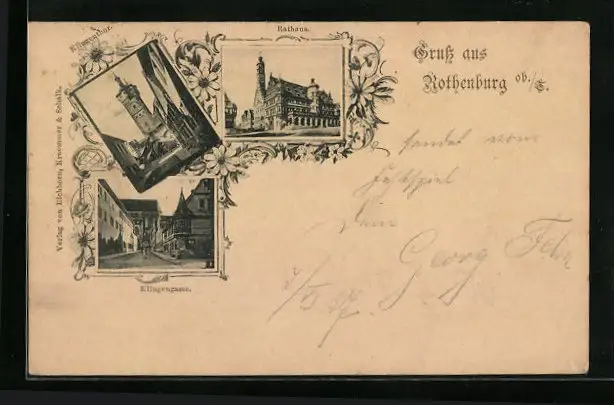 Klingenthor.
Rathaus.
Gruß aus
Rothenburg ob./T.
Verlag von Eichhorn, Kraemmer & Schalk.
Klingengasse.
sendet vom
Festspiel
Dein
Georg